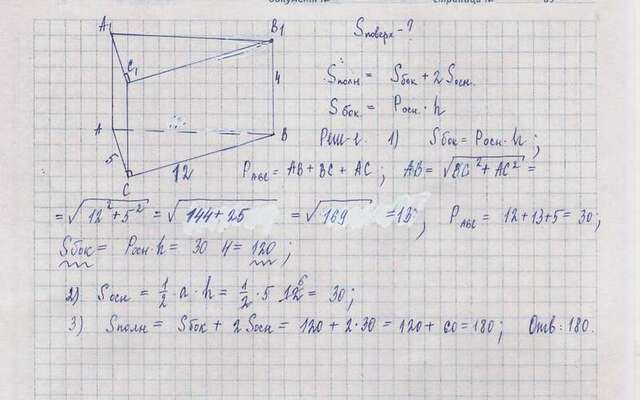 Sповерх-?
A1
B1
C1
Sполн = Sбок + 2Sосн.
4
Sбок = Pосн · h
A
B
Реш-е. 1) Sбок = Pосн · h;
5
C
12
PABC = AB + BC + AC; AB = √BC² + AC² =
= √12² + 5² = √144 + 25 = √169 = 13; PABC = 12 + 13 + 5 = 30;
Sбок = Pосн · h = 30 4 = 120;
2) Sосн = 1/2 a · h = 1/2 · 5 12 6 = 30;
3) Sполн = Sбок + 2Sосн = 120 + 2·30 = 120 + 60 = 180; Отв: 180.